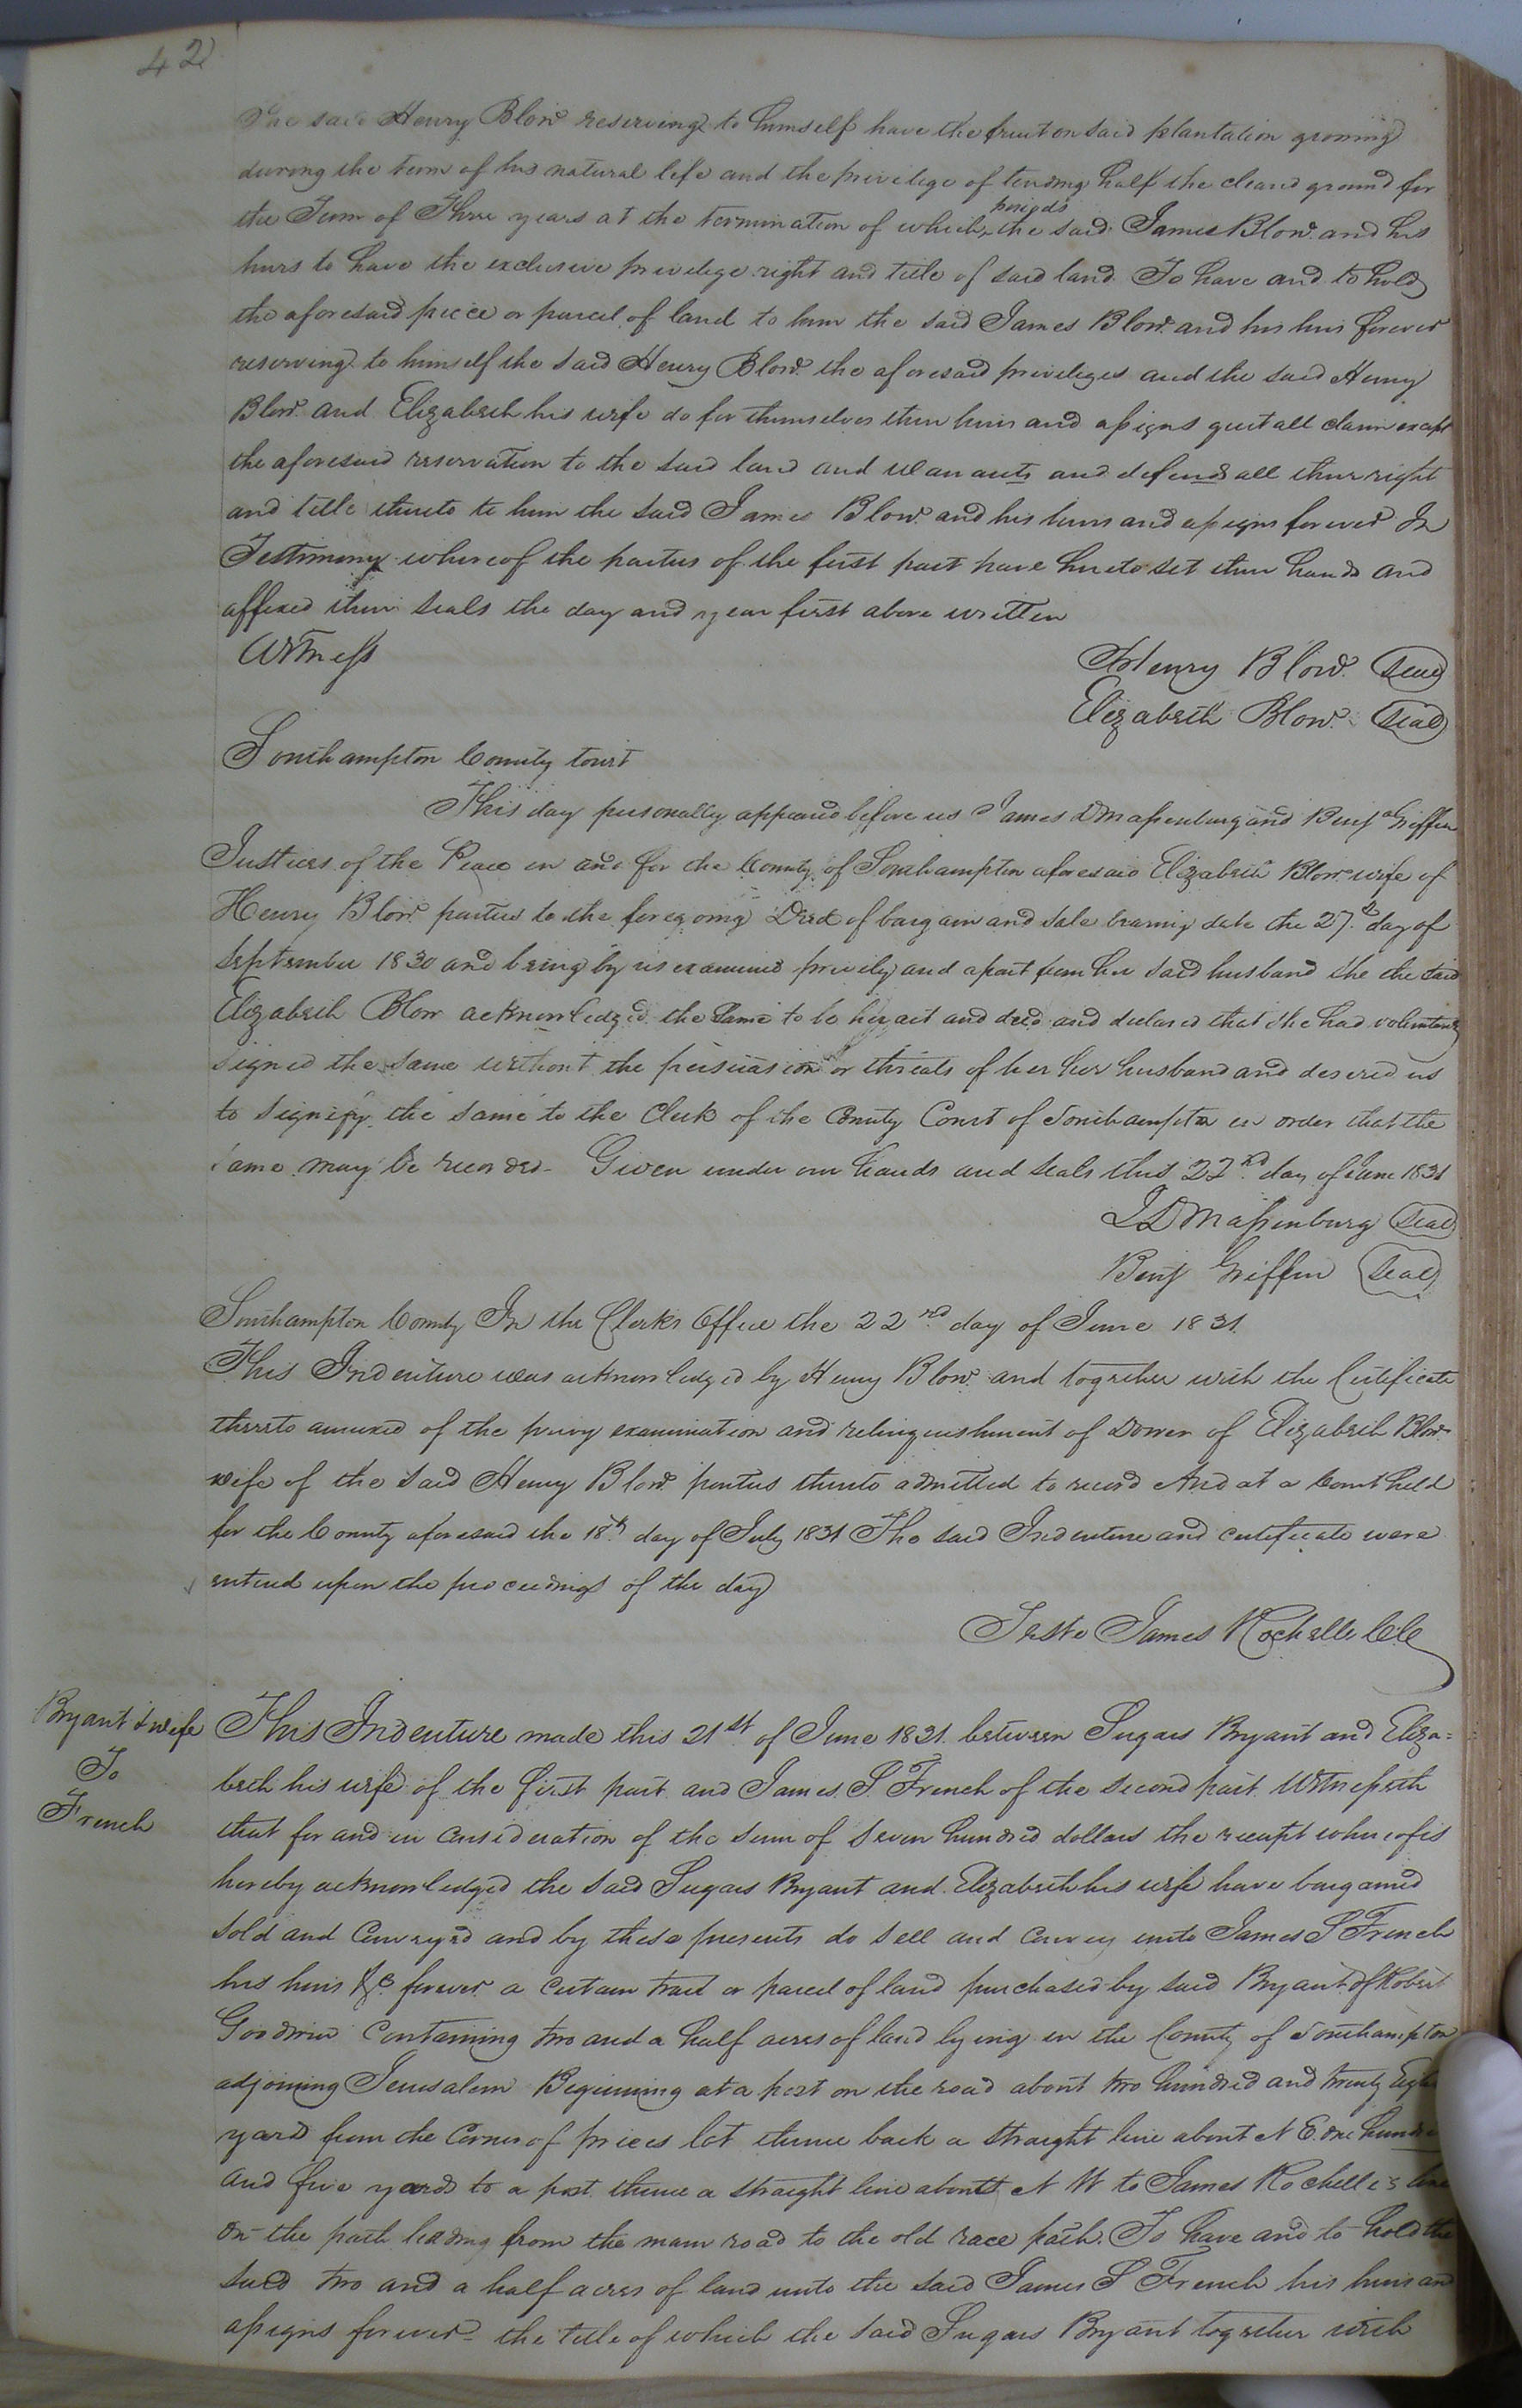 42
The said Henry Blow reserving to himself have the fruit on said plantation growing
during the term of his natural life and the privilege of tending half the cleard ground for
the Term of Three years at the termination of which periods the said James Blow and his
heirs to have the exclusive privilege right and title of said land To have and to hold
the aforesaid piece or parcel of land to him the said James Blow and his heirs forever
reserving to himself the said Henry Blow the aforesaid privileges and the said Henry
Blow and Elizabeth his wife do for themselves their heirs and assigns quit all claim except
the aforesaid reservation to the said land and warrants and defends all their right
and title thereto to him the said James Blow and his heirs and assigns forever In
Testimony whereof the parties of the first part have hereto set their hands and
affixed their seals the day and year first above written
Witness
Henry Blow Seal
Elizabeth Blow Seal
Southampton County Court
This day personally appeared before us James D Massenburg and Benja Griffin
Justices of the Peace in and for the County of Southampton aforesaid Elizabeth Blow wife of
Henry Blow parties to the foregoing Deed of bargain and sale bearing date the 27th day of
September 1830 and being by us examined privily and apart from her said husband she the said
Elizabeth Blow acknowledged the same to be her act and deed and declared that she had voluntary
signed the same without the persuasion or threats of her her husband and desired us
to signify the same to the Clerk of the County Court of Southampton in order that the
same may be recorded - Given under our hands and seals this 22nd day of June 1831
J D Massenburg Seal
Benj Griffin Seal
Southampton County In the Clerks Office the 22nd day of June 1831.
This Indenture was acknowledged by Henry Blow and together with the Certificate
thereto annexed of the privy examination and relinquishment of Dower of Elizabeth Blow
wife of the said Henry Blow parties thereto admitted to record And at a Court held
for the County aforesaid the 18th day of July 1831 The said Indenture and certificate were
entered upon the proceedings of the day
Teste James Rochelle ClC
Bryant & wife
To
French
This Indenture made this 21st of June 1831. between Sugars Bryant and Eliza=
beth his wife of the first part and James S. French of the second part Witnesseth
that for and in consideration of the sum of seven hundred dollars the receipt whereof is
hereby acknowledged the said Sugars Bryant and Elizabeth his wife have bargained
sold and conveyed and by these presents do sell and convey unto James S French
his heirs &c forever a certain tract or parcel of land purchased by said Bryant of Robert
Goodwin containing two and a half acres of land lying in the County of Southampton
adjoining Jerusalem Beginning at a post on the road about two hundred and twenty Eight
yard from the Corner of prices lot thence back a straight line about N E. one hundred
and five yards to a post thence a straight line about N W to James Rochelle's line
on the path leading from the main road to the old race path. To have and to hold the
said two and a half acres of land unto the said James S French his heirs and
assigns forever - the title of which the said Sugars Bryant together with